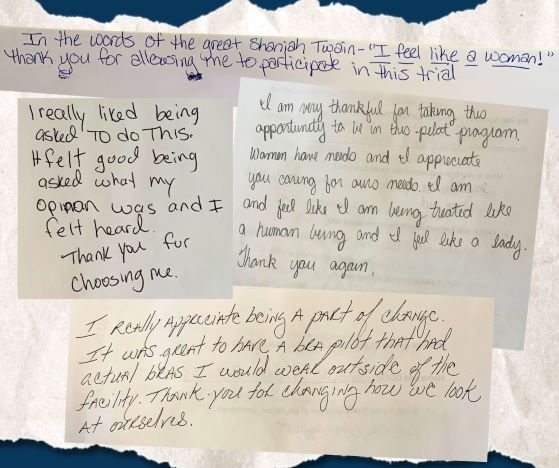 In the words of the great Shaniah Twain - "I feel like a woman!"
thank you for allowing me to participate in this trial
I really liked being
asked TO do THis.
It felt good being
asked what my
Opinion was and I
felt heard.
Thank you for
choosing me.
I am very thankful for taking this
opportunity to be in this pelot program.
Women have needs and I appreciate
you caring for ours needs. I am
and feel like I am being treated like
a human being and I feel like a lady.
Thank you again.
I REALLY APPRECIATE being A PART of CHANGE.
IT WAS GREAT to HAVE A BRA pilot THAT HAD
ACTUAL BRAS I WOULD WEAR OUTSIDE of THE
FACILITY. THANK-YOU FOR CHANGING HOW WE LOOK
AT OURSELVES.